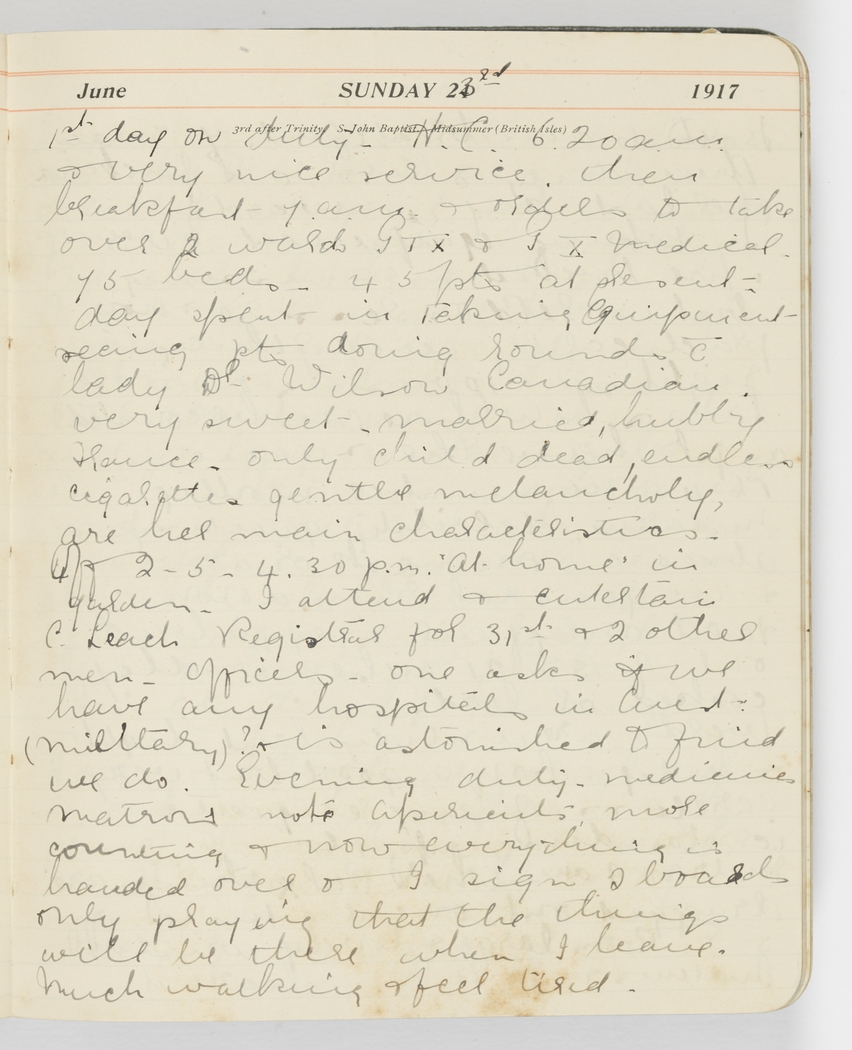 June SUNDAY 23rd 1917
3rd after Trinity. S. John Baptist. Midsummer (British Isles)
1st day on duty - H.C. 6.20 am.
& very nice service. then
breakfast 7 am. & orders to take
over 2 wards G I X & G X medical.
75 beds - 45 pts at present -
day spent in taking equipment
seeing pts doing rounds c̄
lady Dr. Wilson Canadian.
very sweet - married, hubby
France - only child dead, endless
cigarettes gentle melancholy,
are her main characteristics -
Off 2-5 - 4.30 p.m. 'At home' in
garden - I attend & entertain
C. Leach Registrar for 31st & 2 other
men - officers - one asks if we
have any hospitals in Aust:
(military)? & is astonished to find
we do. Evening duty - medicines
matrons note aperients, more
counting & now everything is
handed over & I sign 2 boards
only praying that the things
will be there when I leave.
Much walking & feel tired -